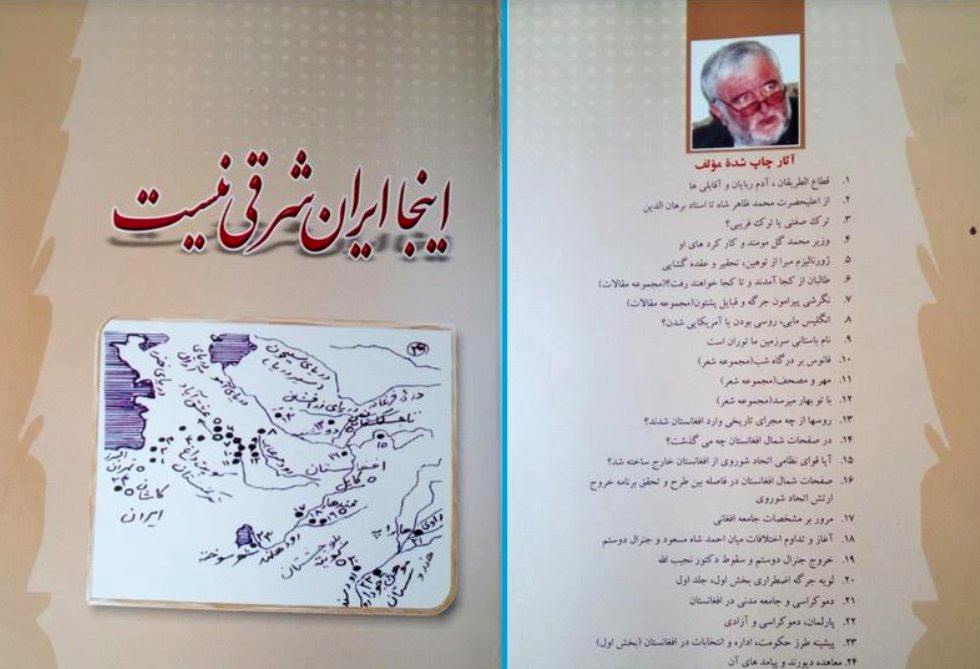 اینجا ایران شرقی نیست
۳۶
دریای خزر
دریای سیحون
(سیردریا)
دریای زرفشان
عشق آباد
تهران
کاشان
ایران
ترکمنستان
افغانستان
کابل
قندهار
سوخته
کویته
هندوستان
آثار چاپ شدهٔ مؤلف
۱. قطاع الطریقان ، آدم ربایان و آقابلی ها
۲. از اعلیحضرت محمد ظاهر شاه تا استاد برهان الدین
۳. ترک صفتی یا ترک فریبی؟
۴. وزیر محمد گل مومند و کار کرد های او
۵. ژورنالیزم مبرا از توهین، تحقیر و عقده گشایی
۶. طالبان از کجا آمدند و تا کجا خواهند رفت؟(مجموعه مقالات)
۷. نگرشی پیرامون جرگه و قبایل پشتون(مجموعه مقالات)
۸. انگلیس مابی، روسی بودن یا آمریکایی شدن؟
۹. نام باستانی سرزمین ما توران است
۱۰. فانوس بر درگاه شب(مجموعه شعر)
۱۱. مهر و مصحف(مجموعه شعر)
۱۲. با تو بهار میرسد(مجموعه شعر)
۱۳. روسها از چه مجرای تاریخی وارد افغانستان شدند؟
۱۴. در صفحات شمال افغانستان چه می گذشت؟
۱۵. آیا قوای نظامی اتحاد شوروی از افغانستان خارج ساخته شد؟
۱۶. صفحات شمال افغانستان در فاصله بین طرح و تحقق برنامه خروج
ارتش اتحاد شوروی
۱۷. مرور بر مشخصات جامعه افغانی
۱۸. آغاز و تداوم اختلافات میان احمد شاه مسعود و جنرال دوستم
۱۹. خروج جنرال دوستم و سقوط دکتور نجیب الله
۲۰. لویه جرگه اضطراری بخش اول، جلد اول
۲۱. دموکراسی و جامعه مدنی در افغانستان
۲۲. پارلمان، دموکراسی و آزادی
۲۳. پیشینه طرز حکومت، اداره و انتخابات در افغانستان (بخش اول)
۲۴. معاهده دیورند و پیامد های آن